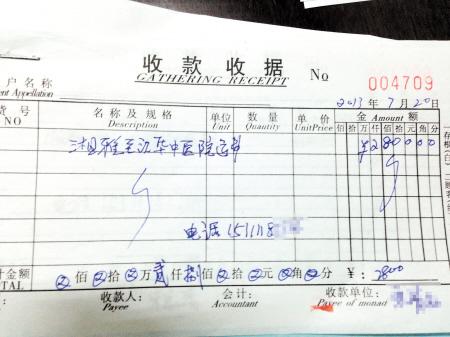 收款收据 No 004709
GATHERING RECEIPT
户名称
ent Appellation
2013 年 7 月 20 日
货号 名称及规格 单位 数量 单价 金 Amount 额
NO Description Unit Quantity UnitPrice 佰 拾 万 仟 佰 拾 元 角 分
湘雅至江华中医院运费 ¥280000
电话 1511118
计金额 佰 拾 万 贰 仟 捌 佰 拾 元 角 分 ¥: 2800
TAL
收款人: 会计: 收款单位:
Payee Accountant Payee of monad